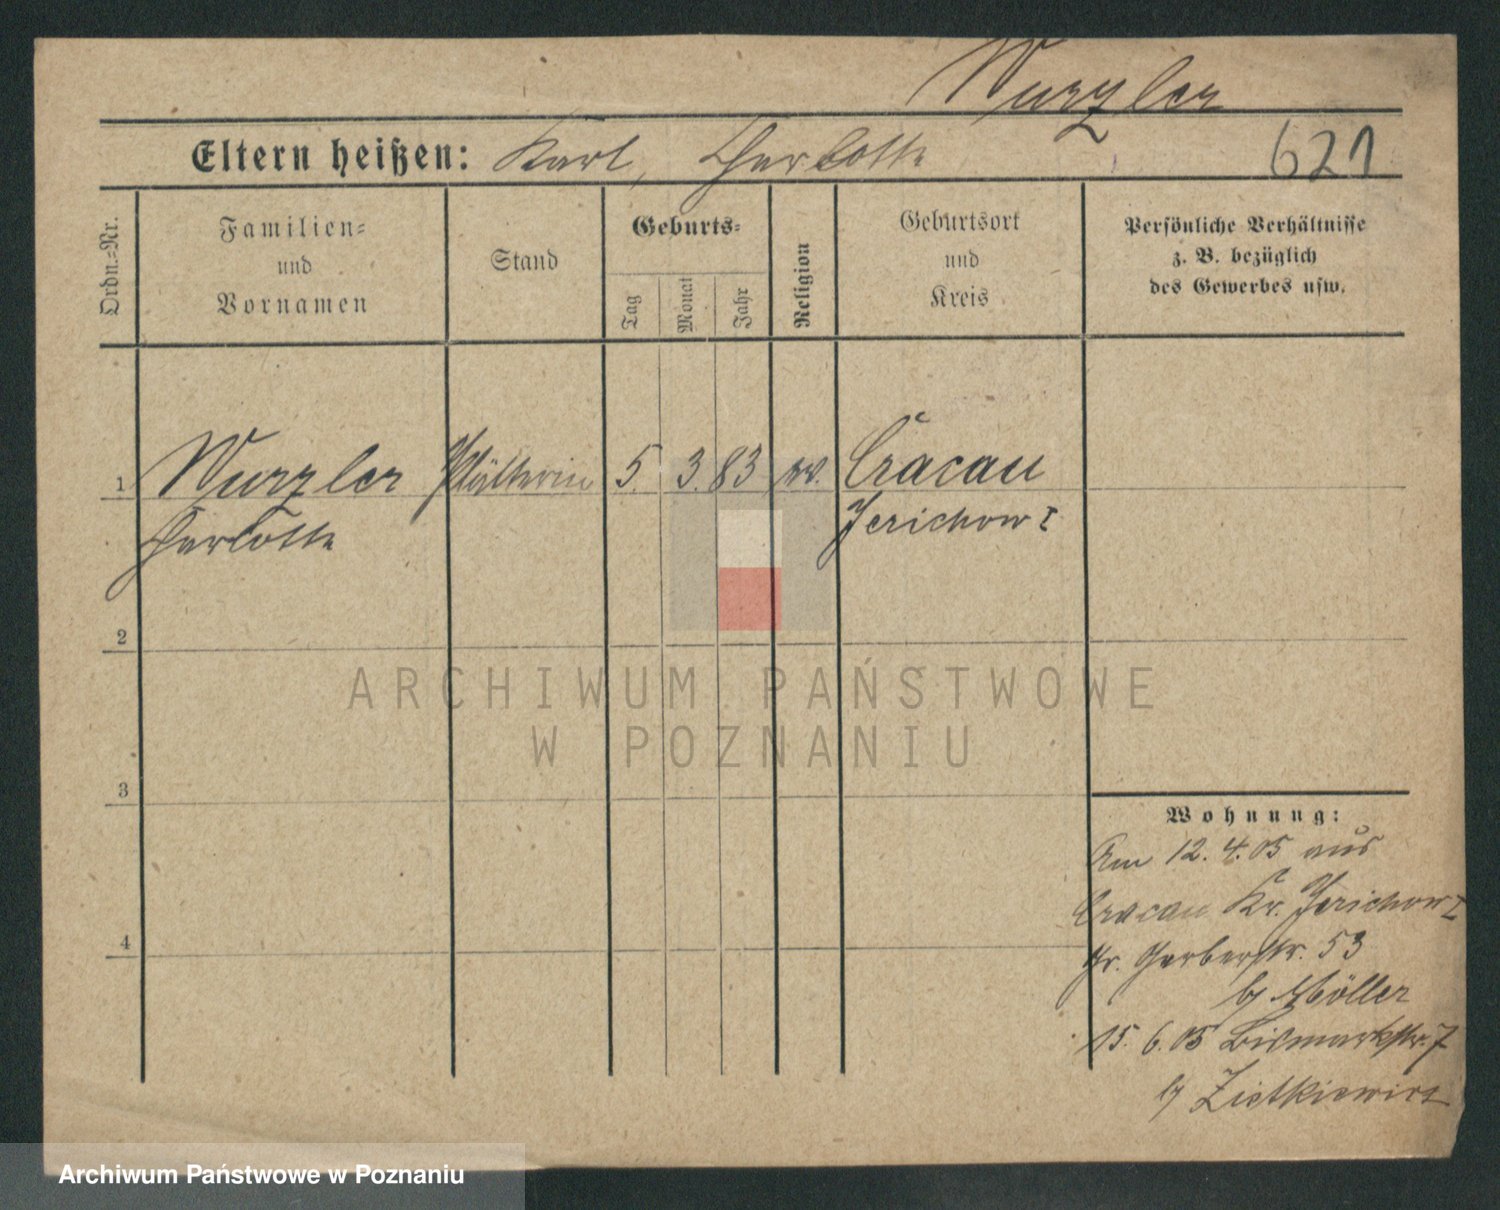 Wurzler
Eltern heißen: Karl, Charlotte
621
Ordn.-Nr.
Familien-
und
Vornamen
Stand
Geburts-
Tag
Monat
Jahr
Religion
Geburtsort
und
Kreis
Persönliche Verhältnisse
z. B. bezüglich
des Gewerbes usw.
1 Wurzler Plätterin 5. 3. 83 ev. Cracau
Charlotte Jerichow I
2
3
4
ARCHIWUM PAŃSTWOWE
W POZNANIU
Wohnung:
Am 12. 4. 05 aus
Cracau Kr. Jerichow I
Gr. Gerberstr. 53
b/ Möller
15. 6. 05 Bismarkstr. 7
b/ Zietkiewicz
Archiwum Państwowe w Poznaniu